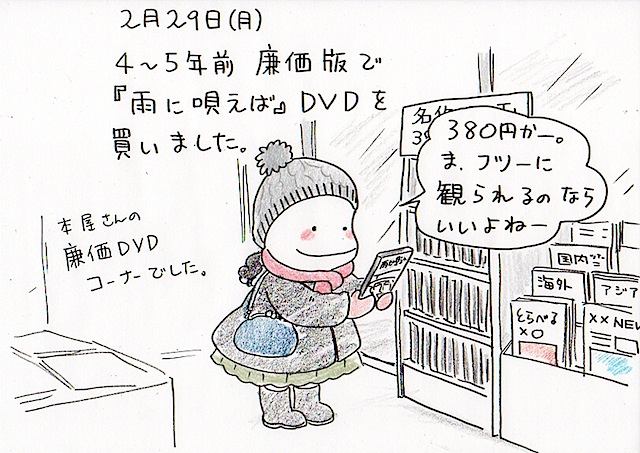 2月29日(月)
4〜5年前 廉価版で
『雨に唄えば』DVDを
買いました。
380円かー。
ま、フツーに
観られるのなら
いいよねー
本屋さんの
廉価DVD
コーナーでした。
名作
国内
海外
アジア
とらべる
×○
××NEW